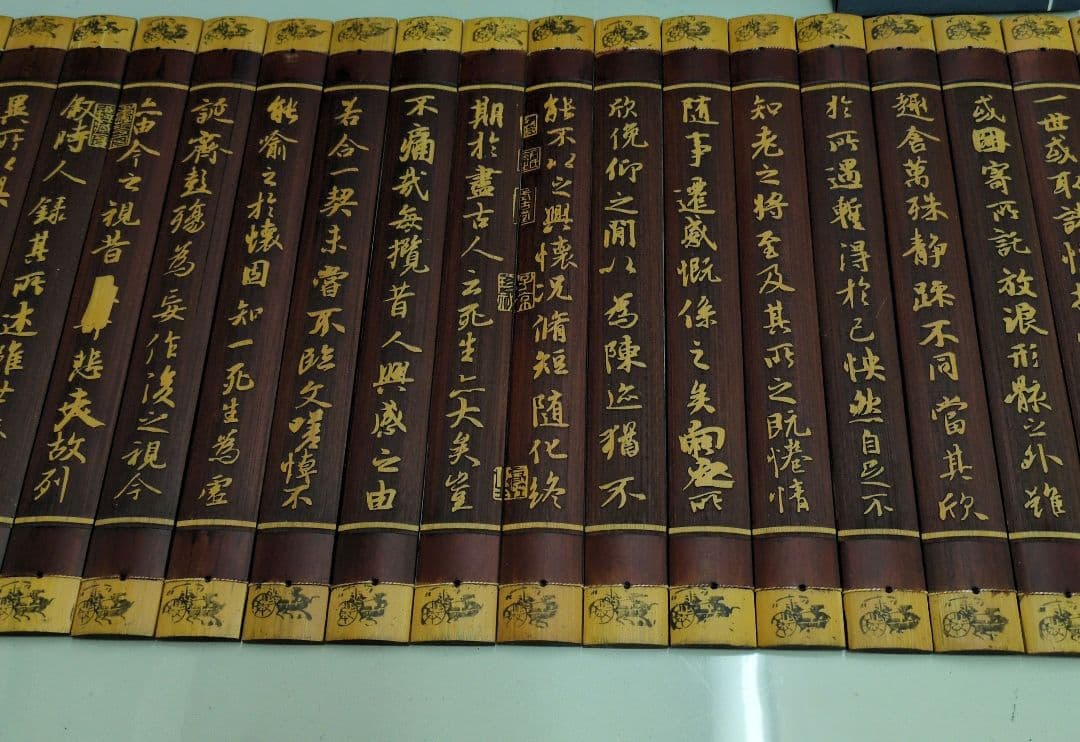 一世或取諸
或因寄所託放浪形骸之外雖
趣舍萬殊静躁不同當其欣
於所遇暫得於己怏然自足不
知老之將至及其所之既惓情
随事遷感慨係之矣向之所
欣俛仰之閒以為陳迹猶不
能不以之興懷況脩短随化終
期於盡古人云死生亦大矣豈
不痛哉每攬昔人興感之由
若合一契未嘗不臨文嗟悼不
能喻之於懷固知一死生為虛
誕齊彭殤為妄作後之視今
亦由今之視昔悲夫故列
敘時人錄其所述雖世
異所以興